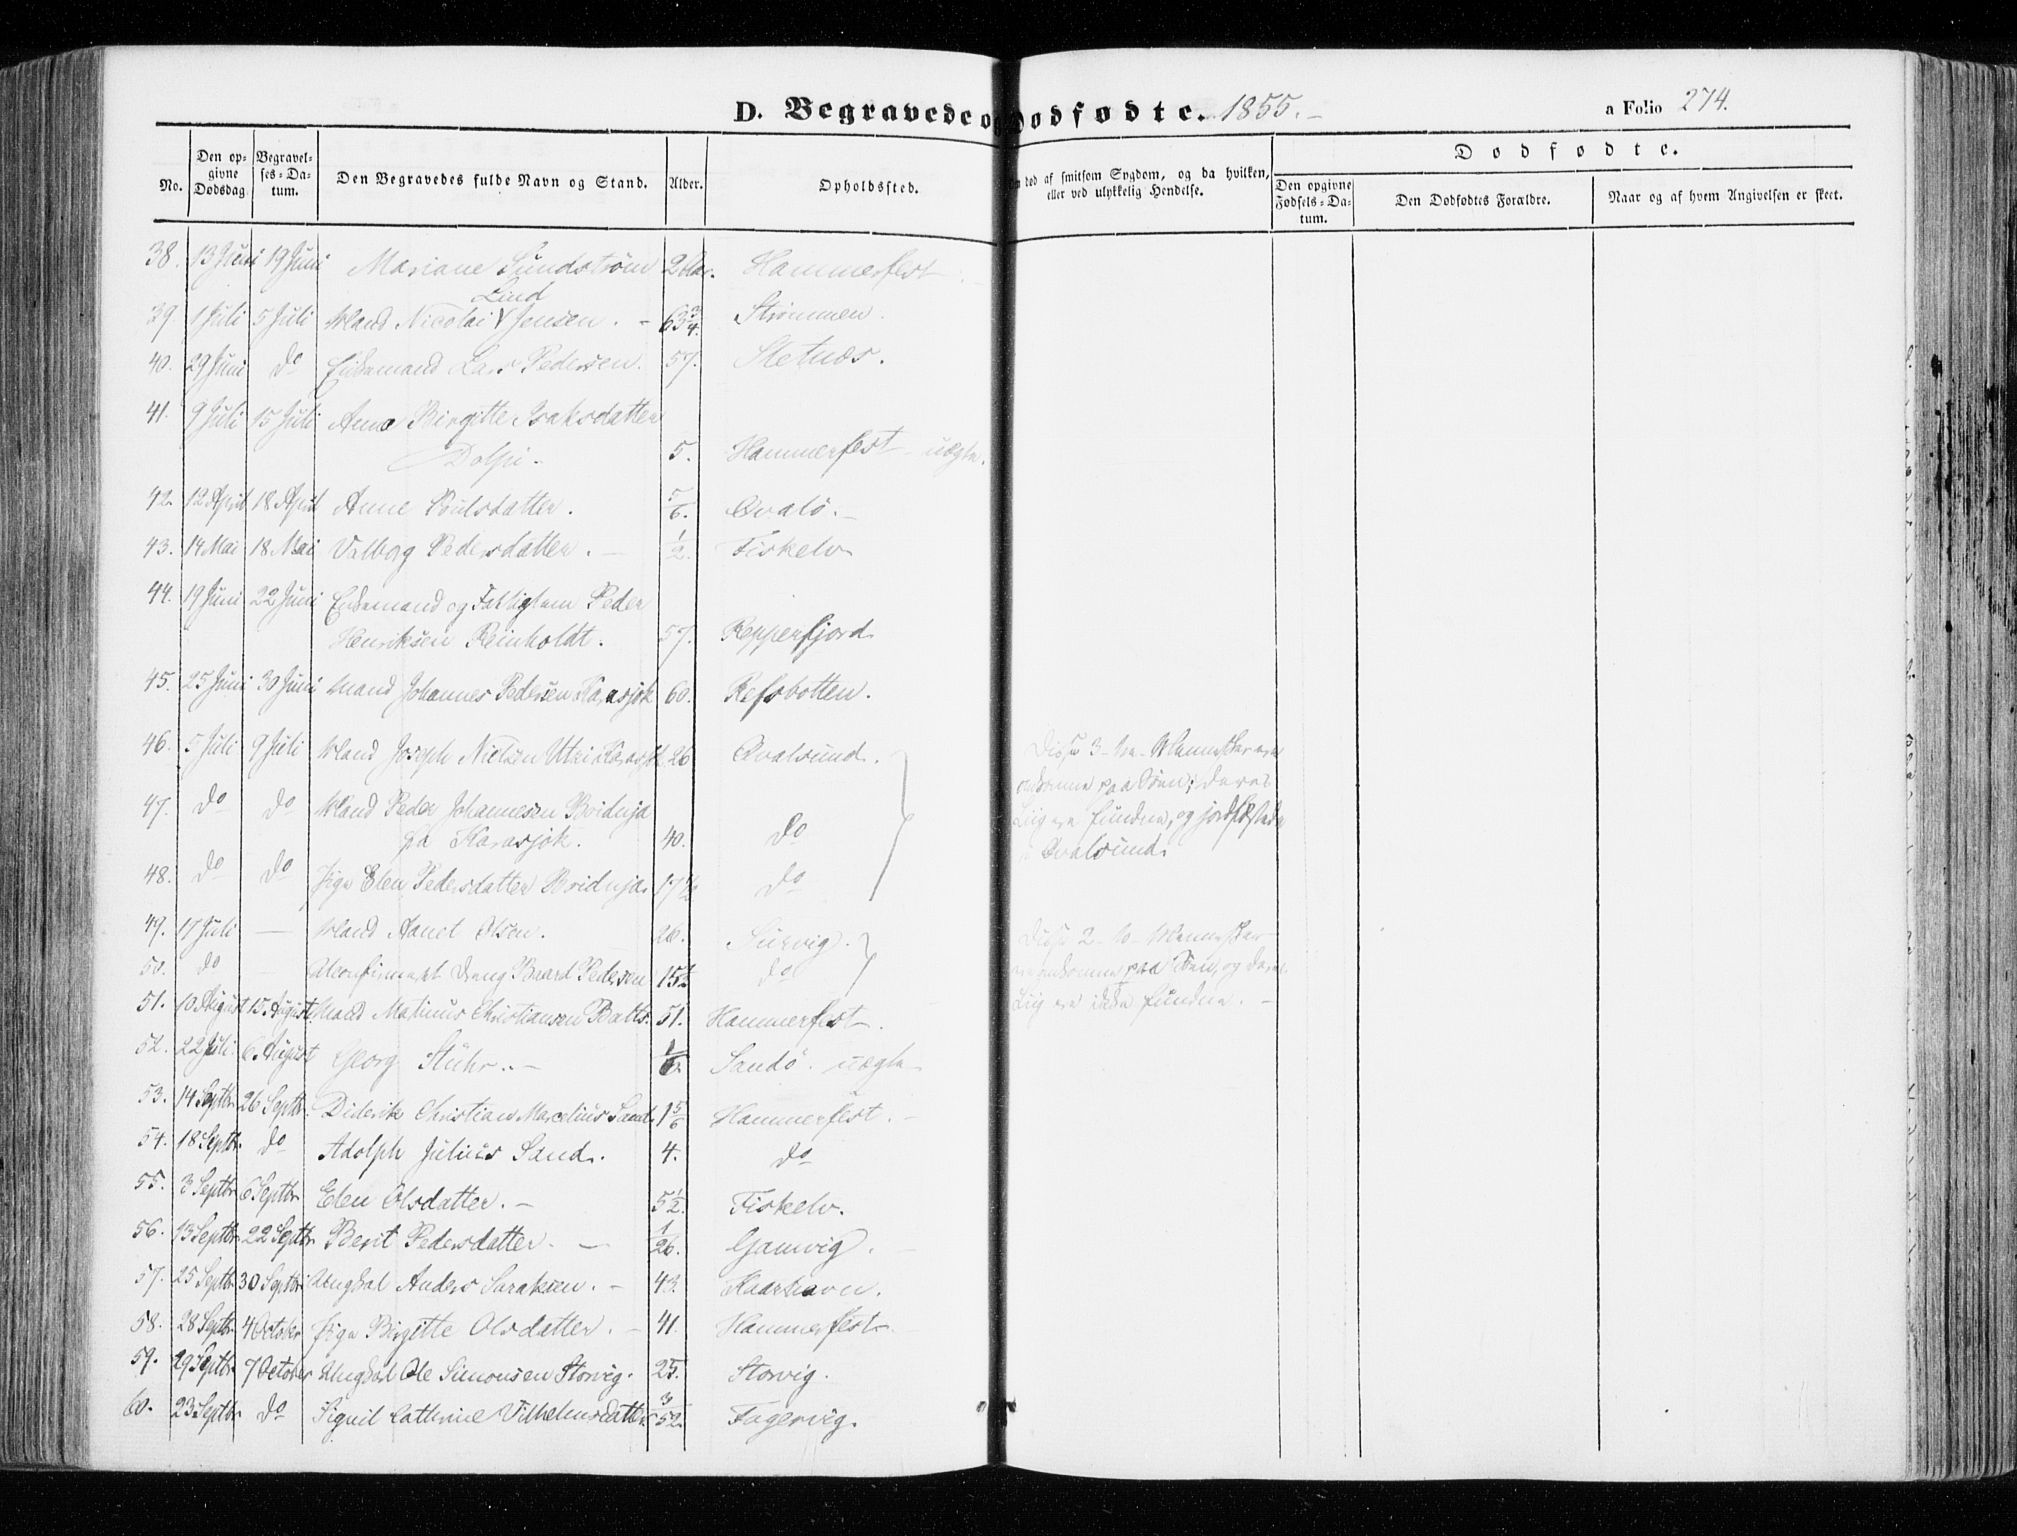 D. Begravede og Dødfødte. 1855.
a Folio 274.
No.
Den opgivne Dødsdag.
Begravelses-Datum.
Den Begravedes fulde Navn og Stand.
Alder.
Opholdssted.
død af smitsom Sygdom, og da hvilken, eller ved ulykkelig Hendelse.
Dødfødte.
Den opgivne Fødsels-Datum.
Den Dødfødtes Forældre.
Naar og af hvem Angivelsen er skeet.
38. 13 Juni 19 Juni Mariane Sundstrøm 2 Hammerfest
Lind
39. 1 Juli 5 Juli Mand Nicolai V Jensen. - 63 3/4. Strømmen.
40. 29 Juni do Enkemand Lars Pedersen. 57. Sletnæs.
41. 9 Juli 15 Juli Anne Birgitte Isaksdatter
Dolpi. 5. Hammerfest uægte.
42. 12 April 18 April Anne Poulsdatter. 5/6. Qvalø. -
43. 14 Mai 18 Mai Valborg Pedersdatter. - 1/2. Fiskelv
44. 19 Juni 22 Juni Enkemand og Fattiglem Peder
Henriksen Reinholdt. 57. Repperfjord.
45. 25 Juni 30 Juni Mand Johannes Pedersen Karasjok 60. Refsbotten.
46. 5 Juli 9 Juli Mand Joseph Nielsen Utsi Karasjok 26 Qvalsund. Disse 3 Mennesker ere
omkomne paa Søen; deres
47. do do Mand Peder Johannesen Bridnja
Liig ere fundne, og jordfæstede
fra Karasjok. 40. do
Qvalsund.
48. do do Pige Elen Pedersdatter Bridnja 17 1/2 do
49. 17 Juli - Mand Aanet Olsen. 26. Survig. Disse 2 Mennesker
50. do - Uconfirmert Dreng Baard Pedersen 15 1/2 do
ere omkomne paa Søen, og deres
51. 10 August 15 August Mand Matinus Christiansen Balts. 51. Hammerfest.
Liig ere ikke fundne. -
52. 22 Juli 6 August Georg Stuhr. - 1/6. Sandø. uægte
53. 14 Septbr. 26 Septbr. Diderik Christian Marcelius Sand. 1 5/6 Hammerfest. -
54. 18 Septbr. do Adolph Julius Sand. 4. do
55. 3 Septbr 6 Septbr Elen Olsdatter. - 5 1/2. Fiskelv.
56. 13 Septbr 22 Septbr Berit Pedersdatter. - 1/26. Gamvig. -
57. 25 Septbr 30 Septbr Ungkal Anders Saraksen. - 43. Kaarhavn.
58. 28 Septbr. 4 October Pige Birgitte Olsdatter. - 41. Hammerfest.
59. 29 Septbr. 7 October Ungkarl Ole Simonsen Storvig. 25. Storvig.
60. 23 Septbr do Signil Cathrine Vilhelmsdatter 3/52. Fagervig.